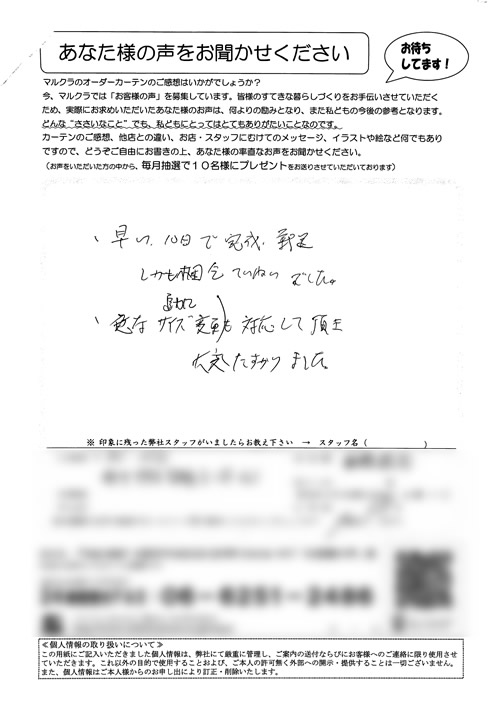 あなた様の声をお聞かせください
お待ち
してます!
マルクラのオーダーカーテンのご感想はいかがでしょうか?
今、マルクラでは「お客様の声」を募集しています。皆様のすてきな暮らしづくりをお手伝いさせていただく
ため、実際にお求めいただいたあなた様のお声は、何よりの励みとなり、また私どもの今後の参考となります。
どんな“ささいなこと”でも、私どもにとってはとてもありがたいことなのです。
カーテンのご感想、他店との違い、お店・スタッフにむけてのメッセージ、イラストや絵など何でもあり
ますので、どうぞご自由にお書きの上、あなた様の率直なお声をお聞かせください。
(お声をいただいた方の中から、毎月抽選で10名様にプレゼントをお送りさせていただいております)
、早い、10日で完成、
しかも ていねいでした。
、急なサイズ変更も対応して頂き
大変たすかりました。
※ 印象に残った弊社スタッフがいましたらお教え下さい → スタッフ名 ( )
≪個人情報の取り扱いについて≫
この用紙にご記入いただきました個人情報は、弊社にて厳重に管理し、ご案内の送付ならびにお客様へのご連絡に限り使用させ
ていただきます。これ以外の目的で使用することおよび、ご本人の許可無く外部への開示・提供することは一切ございません。
また、個人情報はご本人様からのお申し出により訂正・削除いたします。